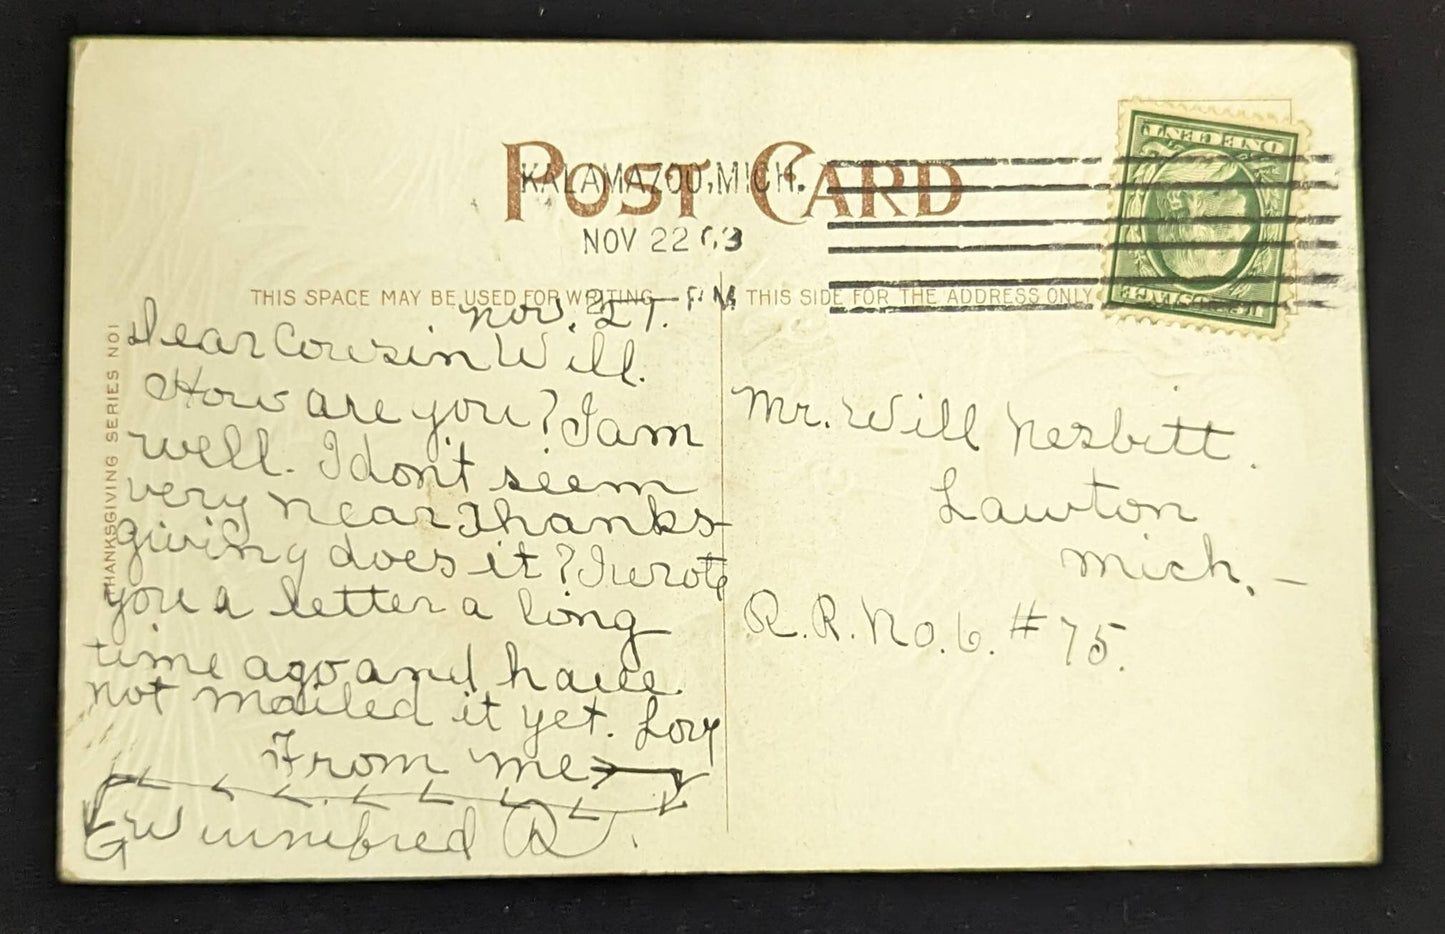 POST CARD
KALAMAZOO, MICH.
NOV 22
2 - PM
THIS SPACE MAY BE USED FOR WRITING
THIS SIDE FOR THE ADDRESS ONLY
ONE CENT
U.S. POSTAGE
THANKSGIVING SERIES NO1
Nov. 21.
Dear Cousin Will.
How are you? I am
well. I don't seem
very near Thanks-
giving does it? I wrote
you a letter a long
time ago and have
not mailed it yet. Lov
From me
Gwinnifred R.
Mr. Will Nesbitt.
Lawton
Mich. –
R.R. No. 6. #75.